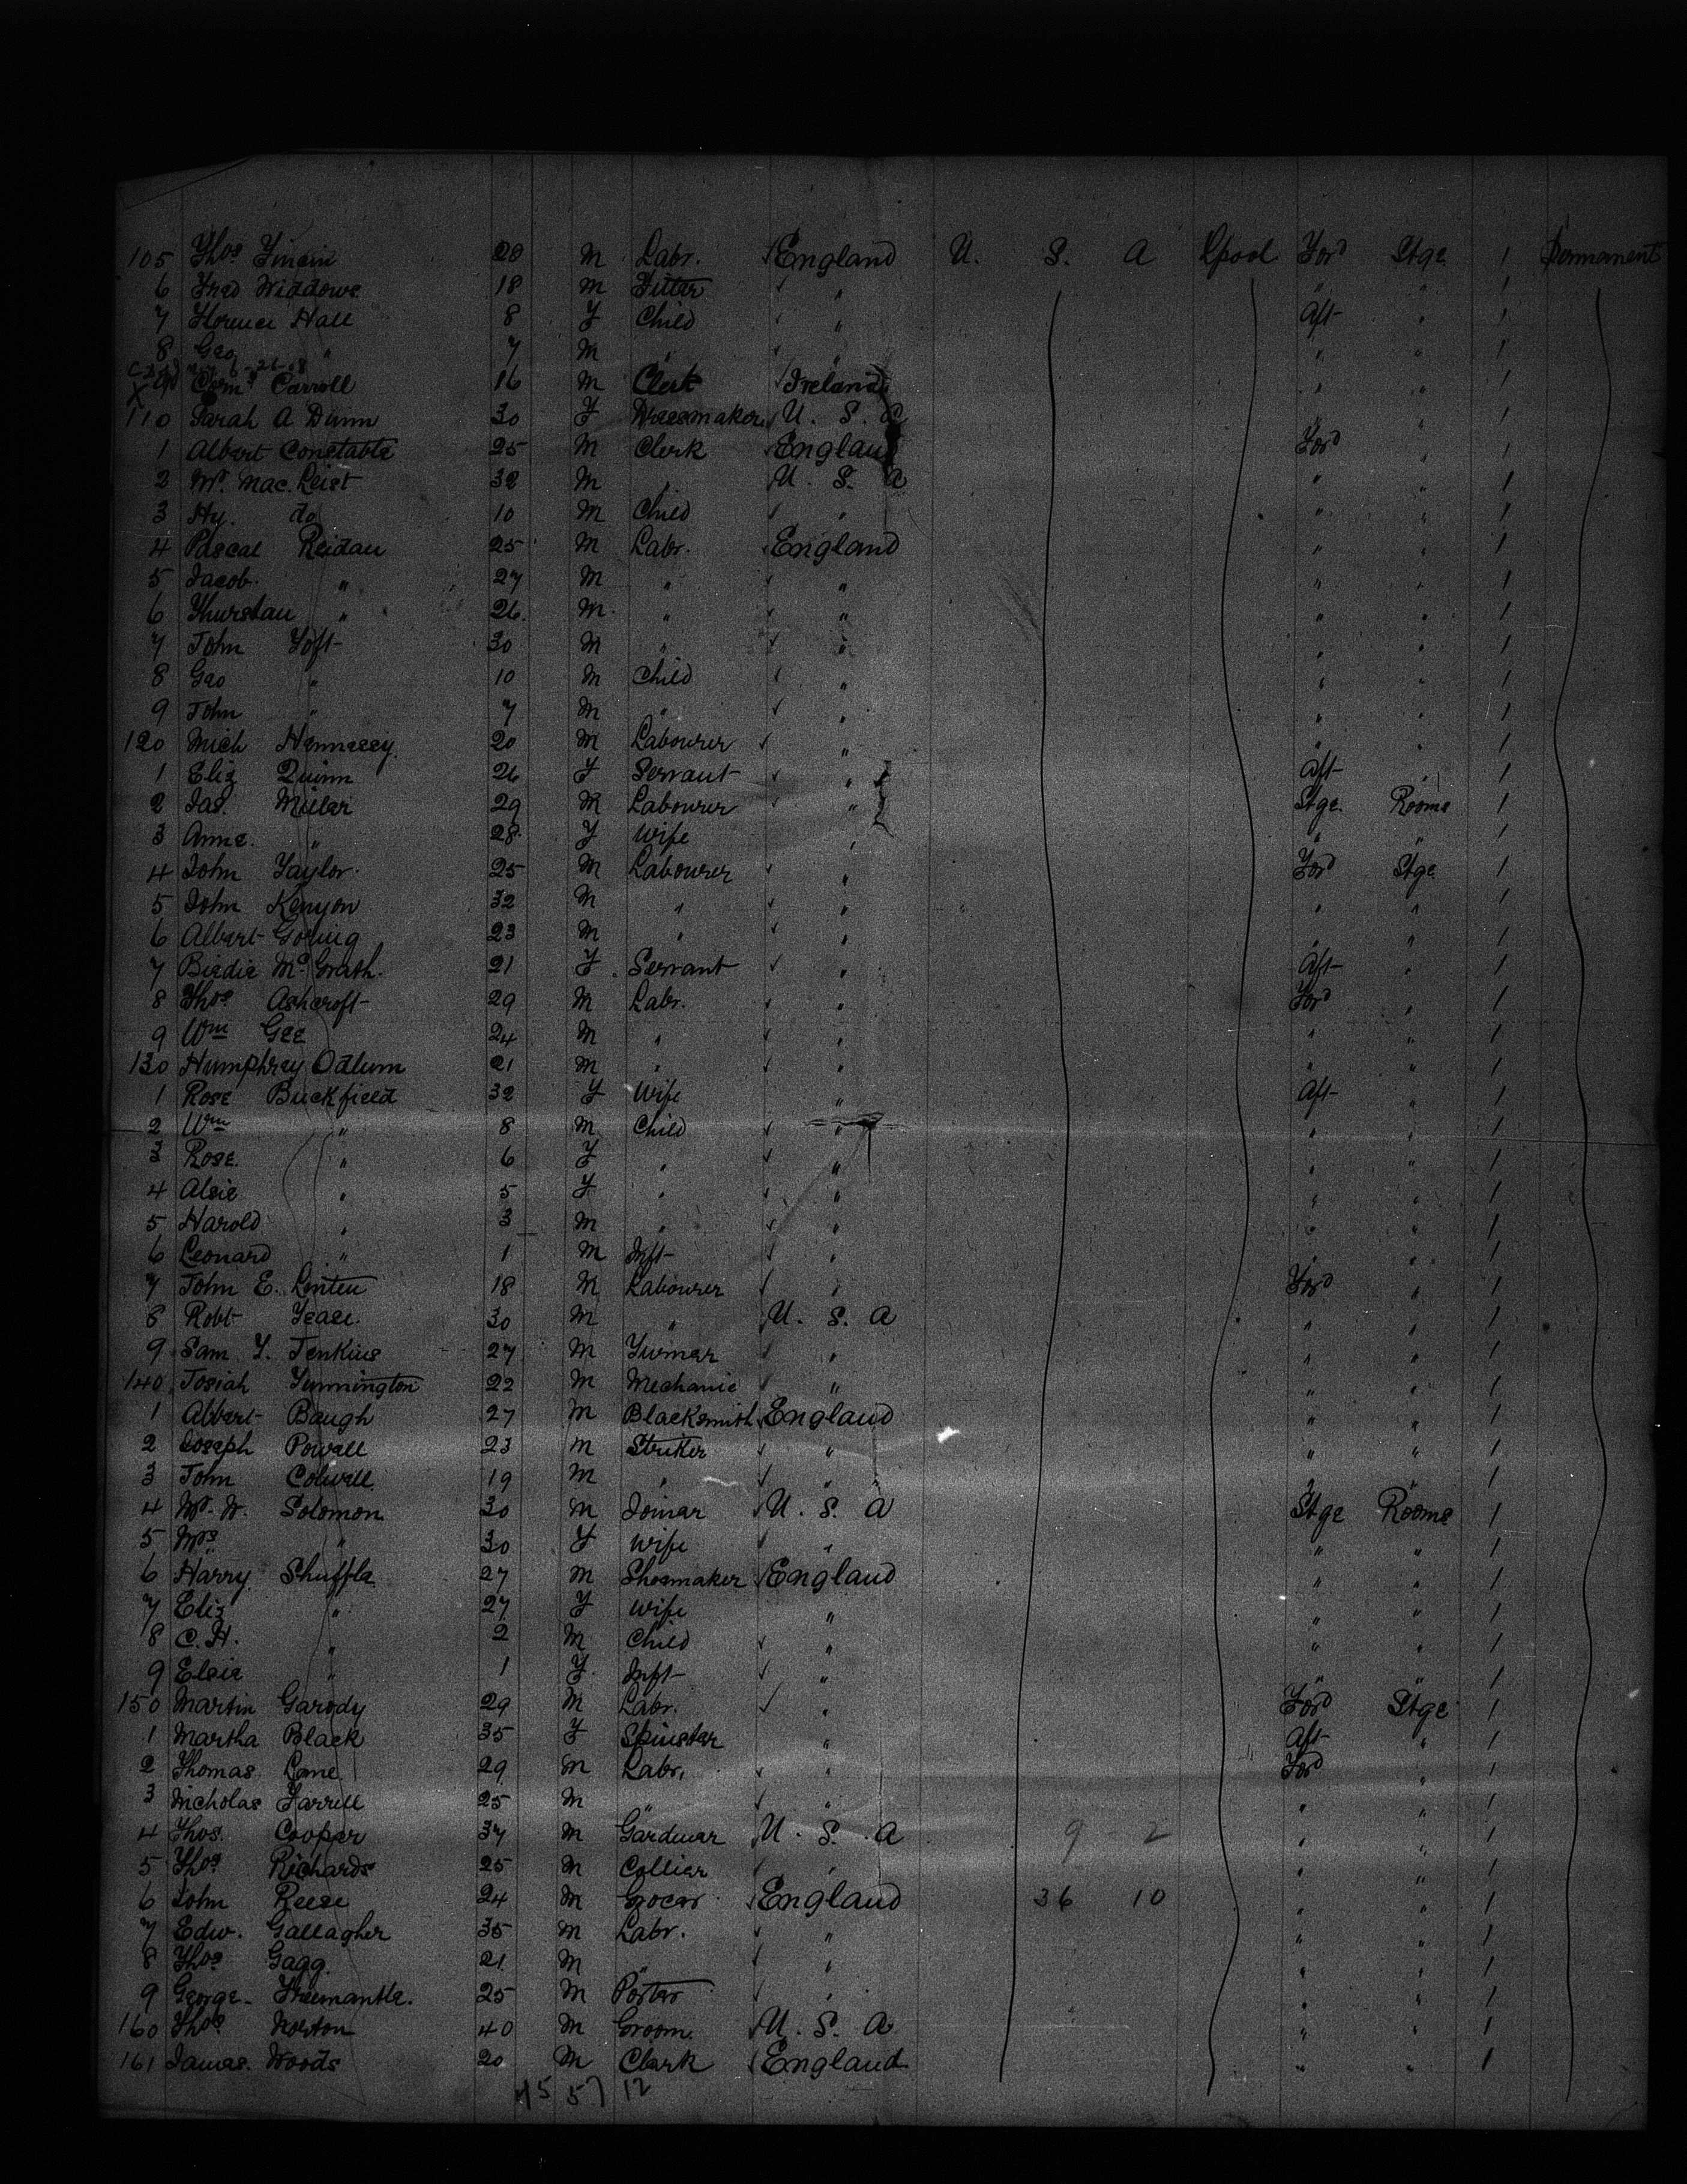 105 Thos 20 M Labr. England U. S. A Lpool Ford Stge 1 Permanent
6 Fred Widdows 18 M Fitter " " " 1
7 Florence Hall 8 F Child " Aft " 1
8 Geo " 7 M " " " " 1
X 9 Carroll 16 M Clerk Ireland " " 1
110 Sarah A Dunn 30 F Dressmaker U. S. A " " 1
1 Albert Constable 25 M Clerk England Ford " 1
2 Mr. Mac. Leist 32 M " U. S. A " " 1
3 Hy. do 10 M Child " " " 1
4 Pascal Reidau 25 M Labr. England " " 1
5 Jacob " 27 M " " " " 1
6 Thurstan " 26 M " " " " 1
7 John Toft 30 M " " " " 1
8 Geo " 10 M Child " " " 1
9 John " 7 M " " " " 1
120 Mich Hennessey 20 M Labourer " " " 1
1 Eliz Quinn 26 F Servant " Aft " 1
2 Jas. Millar 29 M Labourer " Stge. Rooms 1
3 Anne. " 28 F Wife " " " 1
4 John Taylor 25 M Labourer " Ford Stge 1
5 John Kenyon 32 M " " " " 1
6 Albert Goring 23 M " " " " 1
7 Birdie McGrath 21 F Servant " Aft " 1
8 Thos Ashcroft 29 M Labr. " Ford " 1
9 Wm Gee 24 M " " " " 1
130 Humphrey Odlum 21 M " " " " 1
1 Rose Buckfield 32 F Wife " Aft " 1
2 Wm " 8 M Child " " " 1
3 Rose. " 6 F " " " " 1
4 Alsie " 5 F " " " " 1
5 Harold " 3 M " " " " 1
6 Leonard " 1 M Inft " " " 1
7 John E. Linten 18 M Labourer " Ford " 1
8 Robt 30 M " U. S. A " " 1
9 Sam Jenkins 27 M " " " 1
140 Josiah 22 M Mechanic " " " 1
1 Albert Baugh 27 M Blacksmith England " " 1
2 Joseph Powell 23 M Striker " " " 1
3 John Colwell 19 M " " " " 1
4 Mr. W. Solomon 30 M Joiner U. S. A Stge Rooms 1
5 Mrs " 30 F Wife " " " 1
6 Harry Shuffle 27 M Shoemaker England " " 1
7 Eliz " 27 F Wife " " " 1
8 C. H. " 2 M Child " " " 1
9 Elsie " 1 F Inft " " " 1
150 Martin Garody 29 M Labr. " Ford Stge 1
1 Martha Black 35 F Spinster " Aft " 1
2 Thomas Lane 29 M Labr. " Ford " 1
3 Nicholas Farrell 25 M " " " " 1
4 Thos. Cooper 37 M Gardner U. S. A 9 2 " " 1
5 Thos Richards 25 M Collier " " " 1
6 John Reese 24 M Grocer England 36 10 " " 1
7 Edw. Gallagher 35 M Labr. " " " 1
8 Thos Gagg 21 M " " " " 1
9 George Freemantle. 25 M Porter " " " 1
160 Thos Norton 40 M Groom. U. S. A " " 1
161 James. Woods 20 M Clerk England " " 1
45 57 12